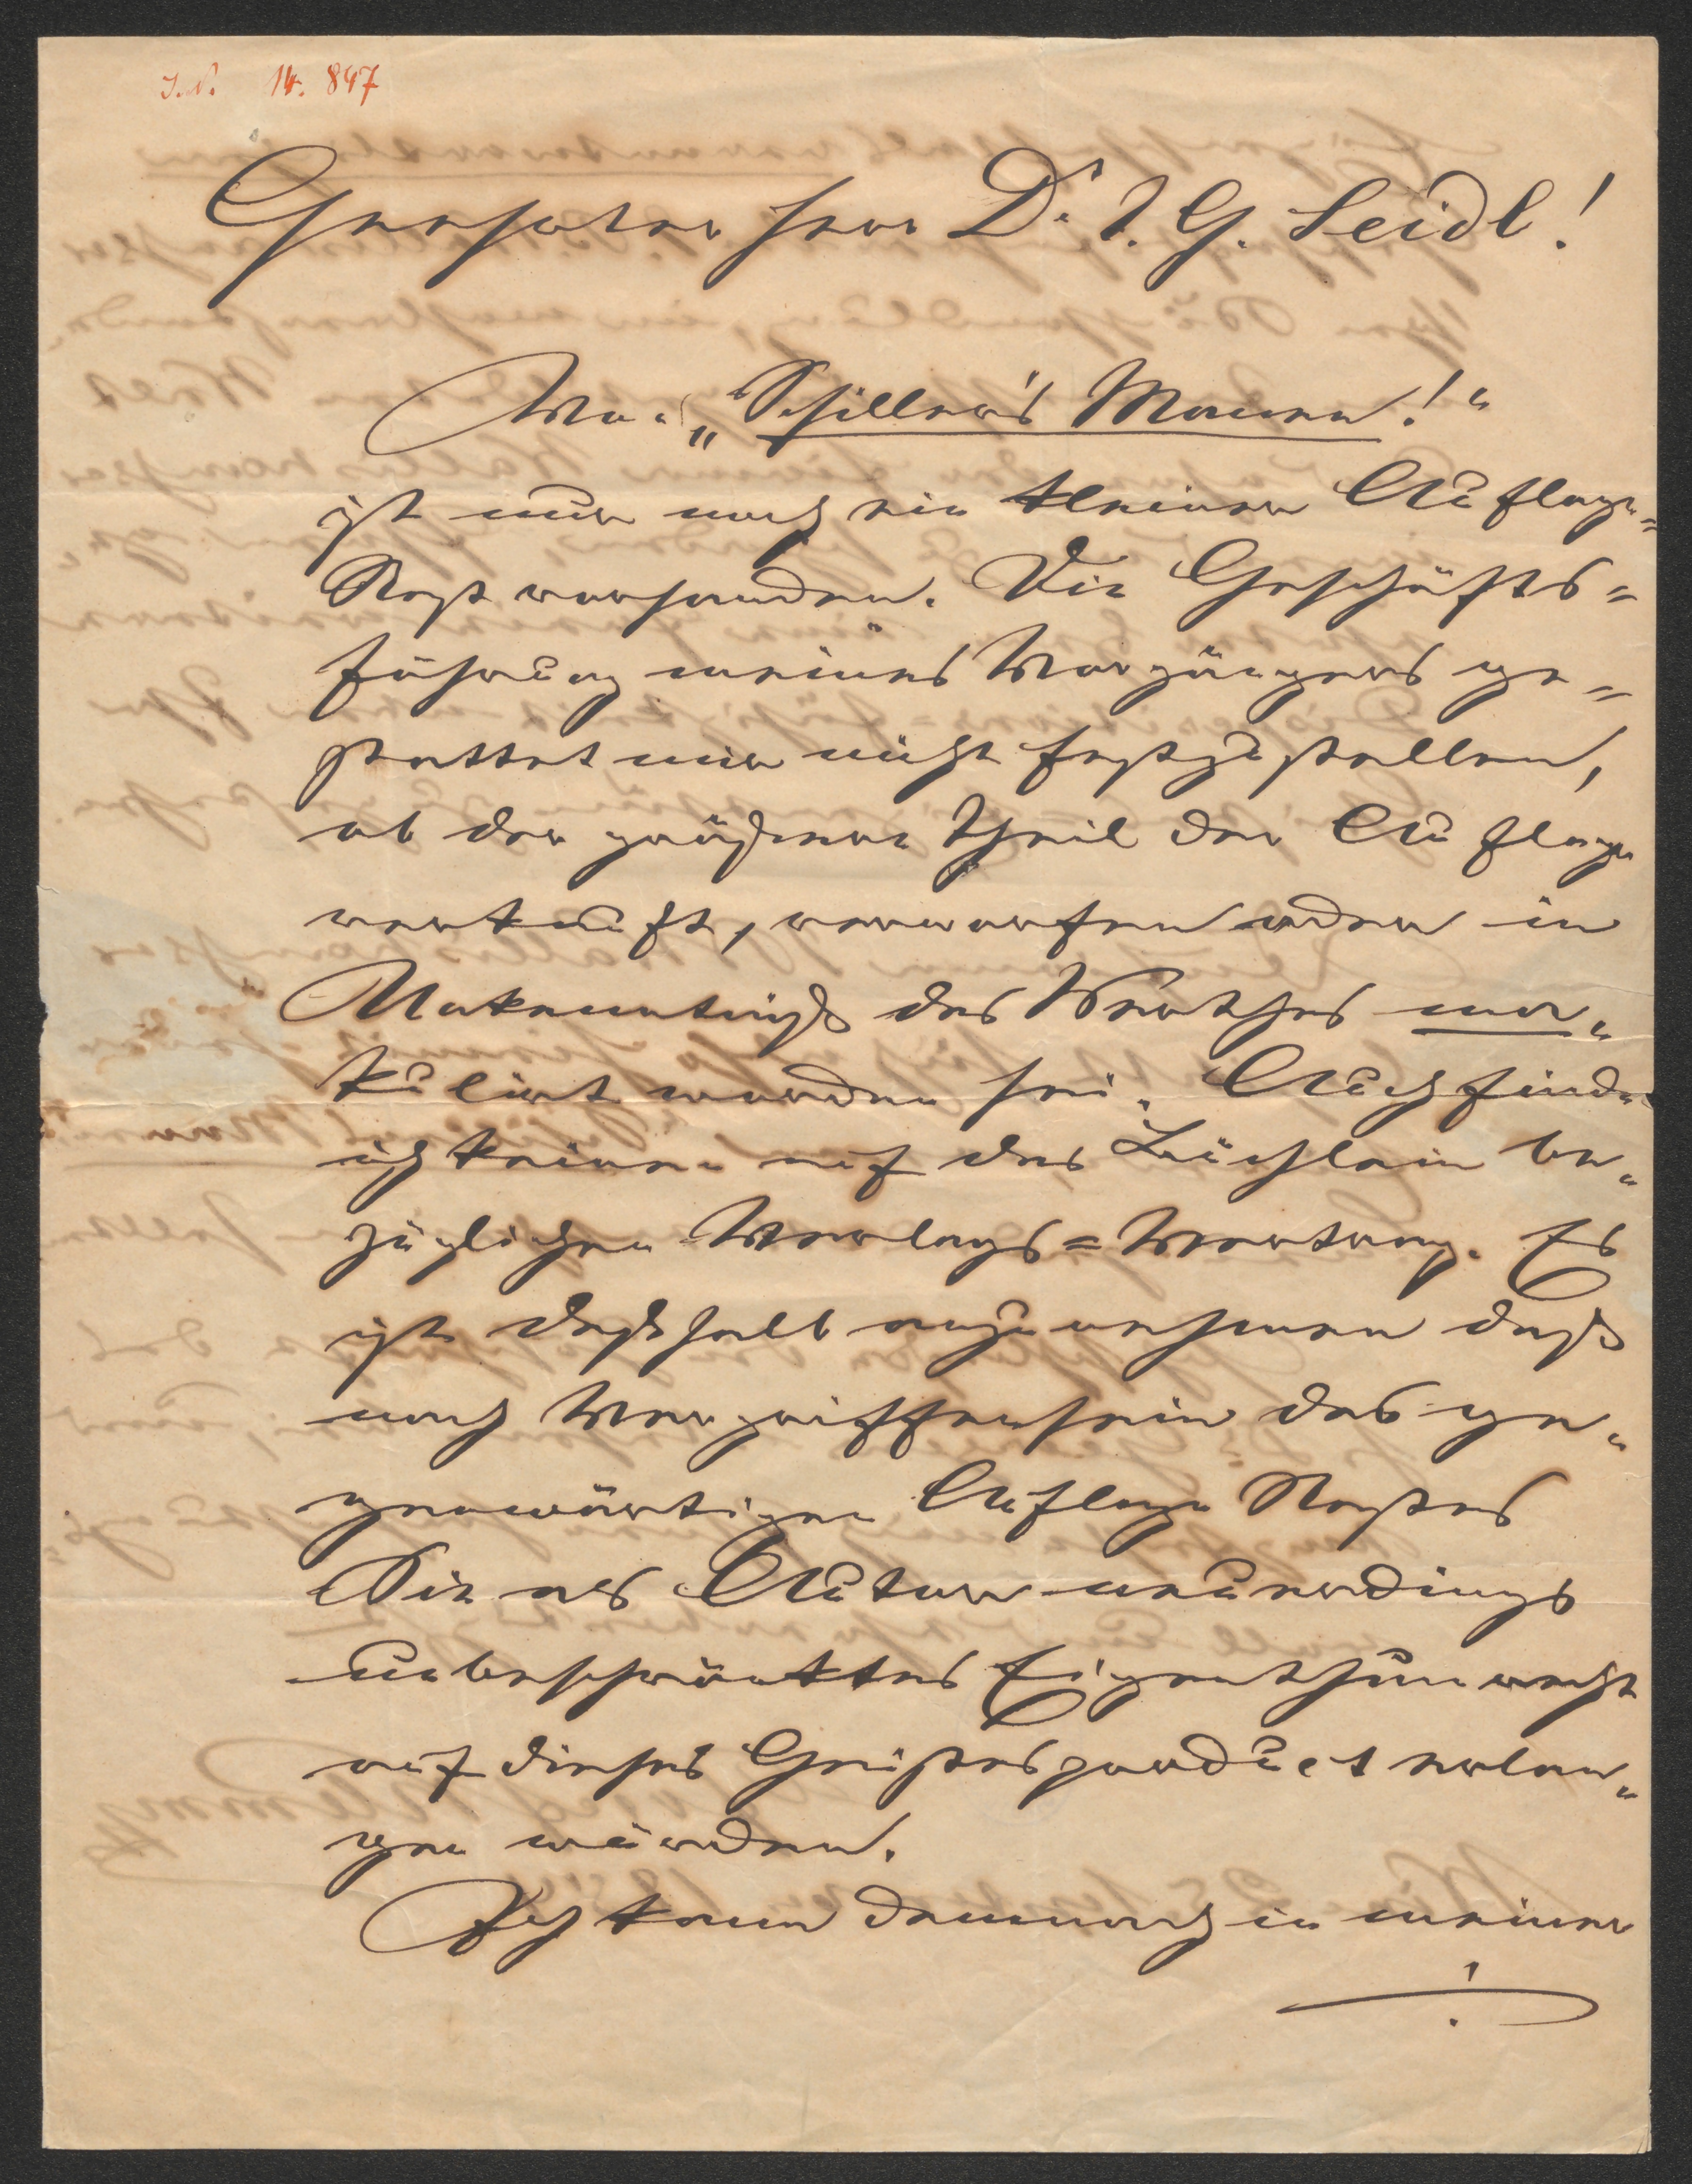 J.N. 14.847
Geehrter Herr Dr. J. G. Seidl!
Von „Schiller's Manen!"
ist nur noch ein kleiner Auflage=
Rest vorhanden. Die Geschäfts=
führung meines Vorgängers ge=
stattet mir nicht festzustellen,
ob der größere Theil der Auflage
verkauft, verworfen oder in
Unkenntniß des Werthes ma-
kulirt worden sei. Auch finde
ich keinen auf das Büchlein be-
züglichen Verlags=Vertrag. Es
ist deßhalb anzunehmen daß
nach Vergriffensein des ge-
genwärtigen Auflage Restes
Sie als Autor neuerdings
unbeschränktes Eigenthumrecht
auf dieses Geistesproduct erlan-
gen würden.
Ich kann demnach in meiner